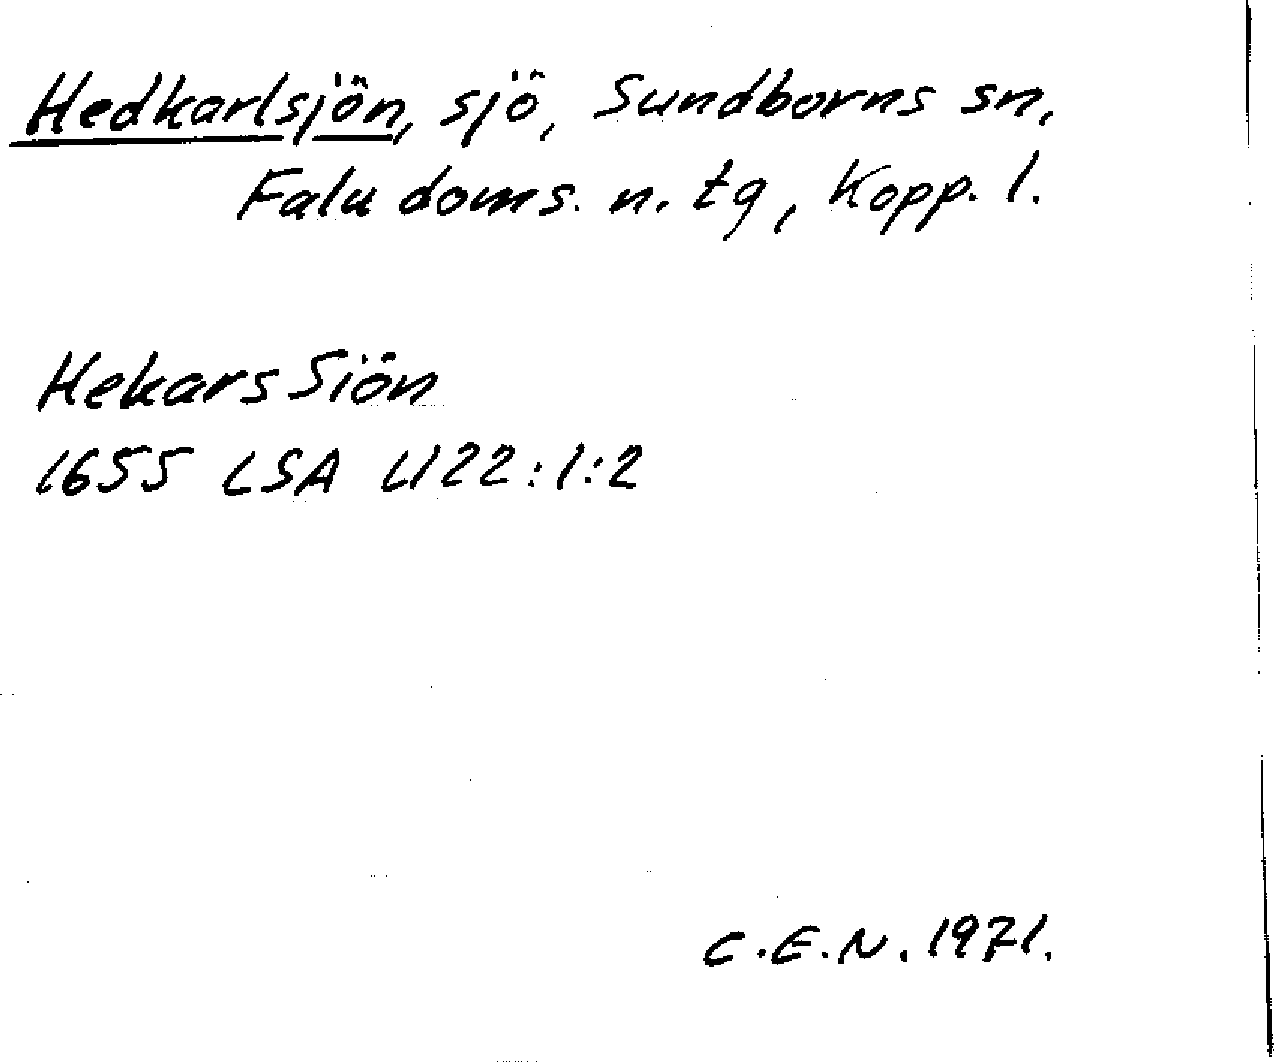 Hedkarlsjön, sjö, Sundborns sn,
Falu doms. n. tg, Kopp. l.
Hekars Siön
1655 LSA U22:1:2
C.E.N. 1971.